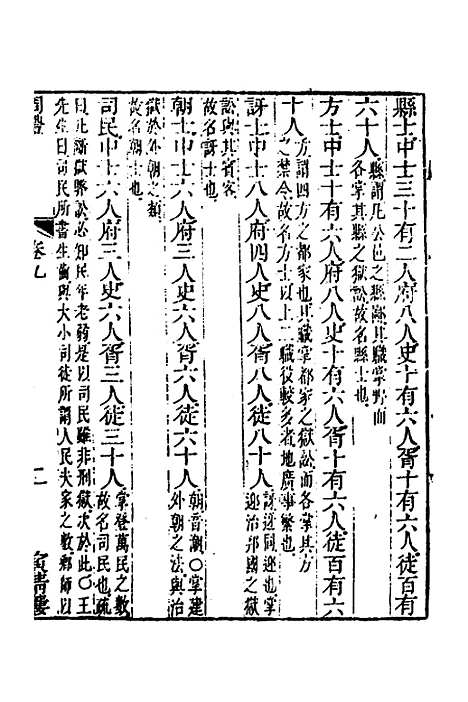 縣士中士三十有二人府八人史十有六人胥十有六人徒百有
六十人縣謂凡公邑之縣鄙其職掌野而
各掌其縣之獄訟故名縣士也
方士中士十有六人府八人史十有六人胥十有六人徒百有六
十人方謂四方之都家也其職掌都家之獄訟而各掌其方
之禁令故名方士以上二職役較多者地廣事繁也
訝士中士八人府四人史八人胥八人徒八十人訝迓同迎也掌
迎治邦國之獄
訟與其賓客
故名訝士也
朝士中士六人府三人史六人胥六人徒六十人朝音潮○掌建
外朝之法與治
獄於外朝之類
故名朝士也
司民中士六人府三人史六人胥三人徒三十人掌登萬民之數
故名司民也疏
曰此斷獄弊訟必知民年老弱是以司民雖非刑獄次於此○王
先生曰司民所書生齒與大小司徒所謂人民夫家之數鄉師以
周禮
卷九
二
寅清樓